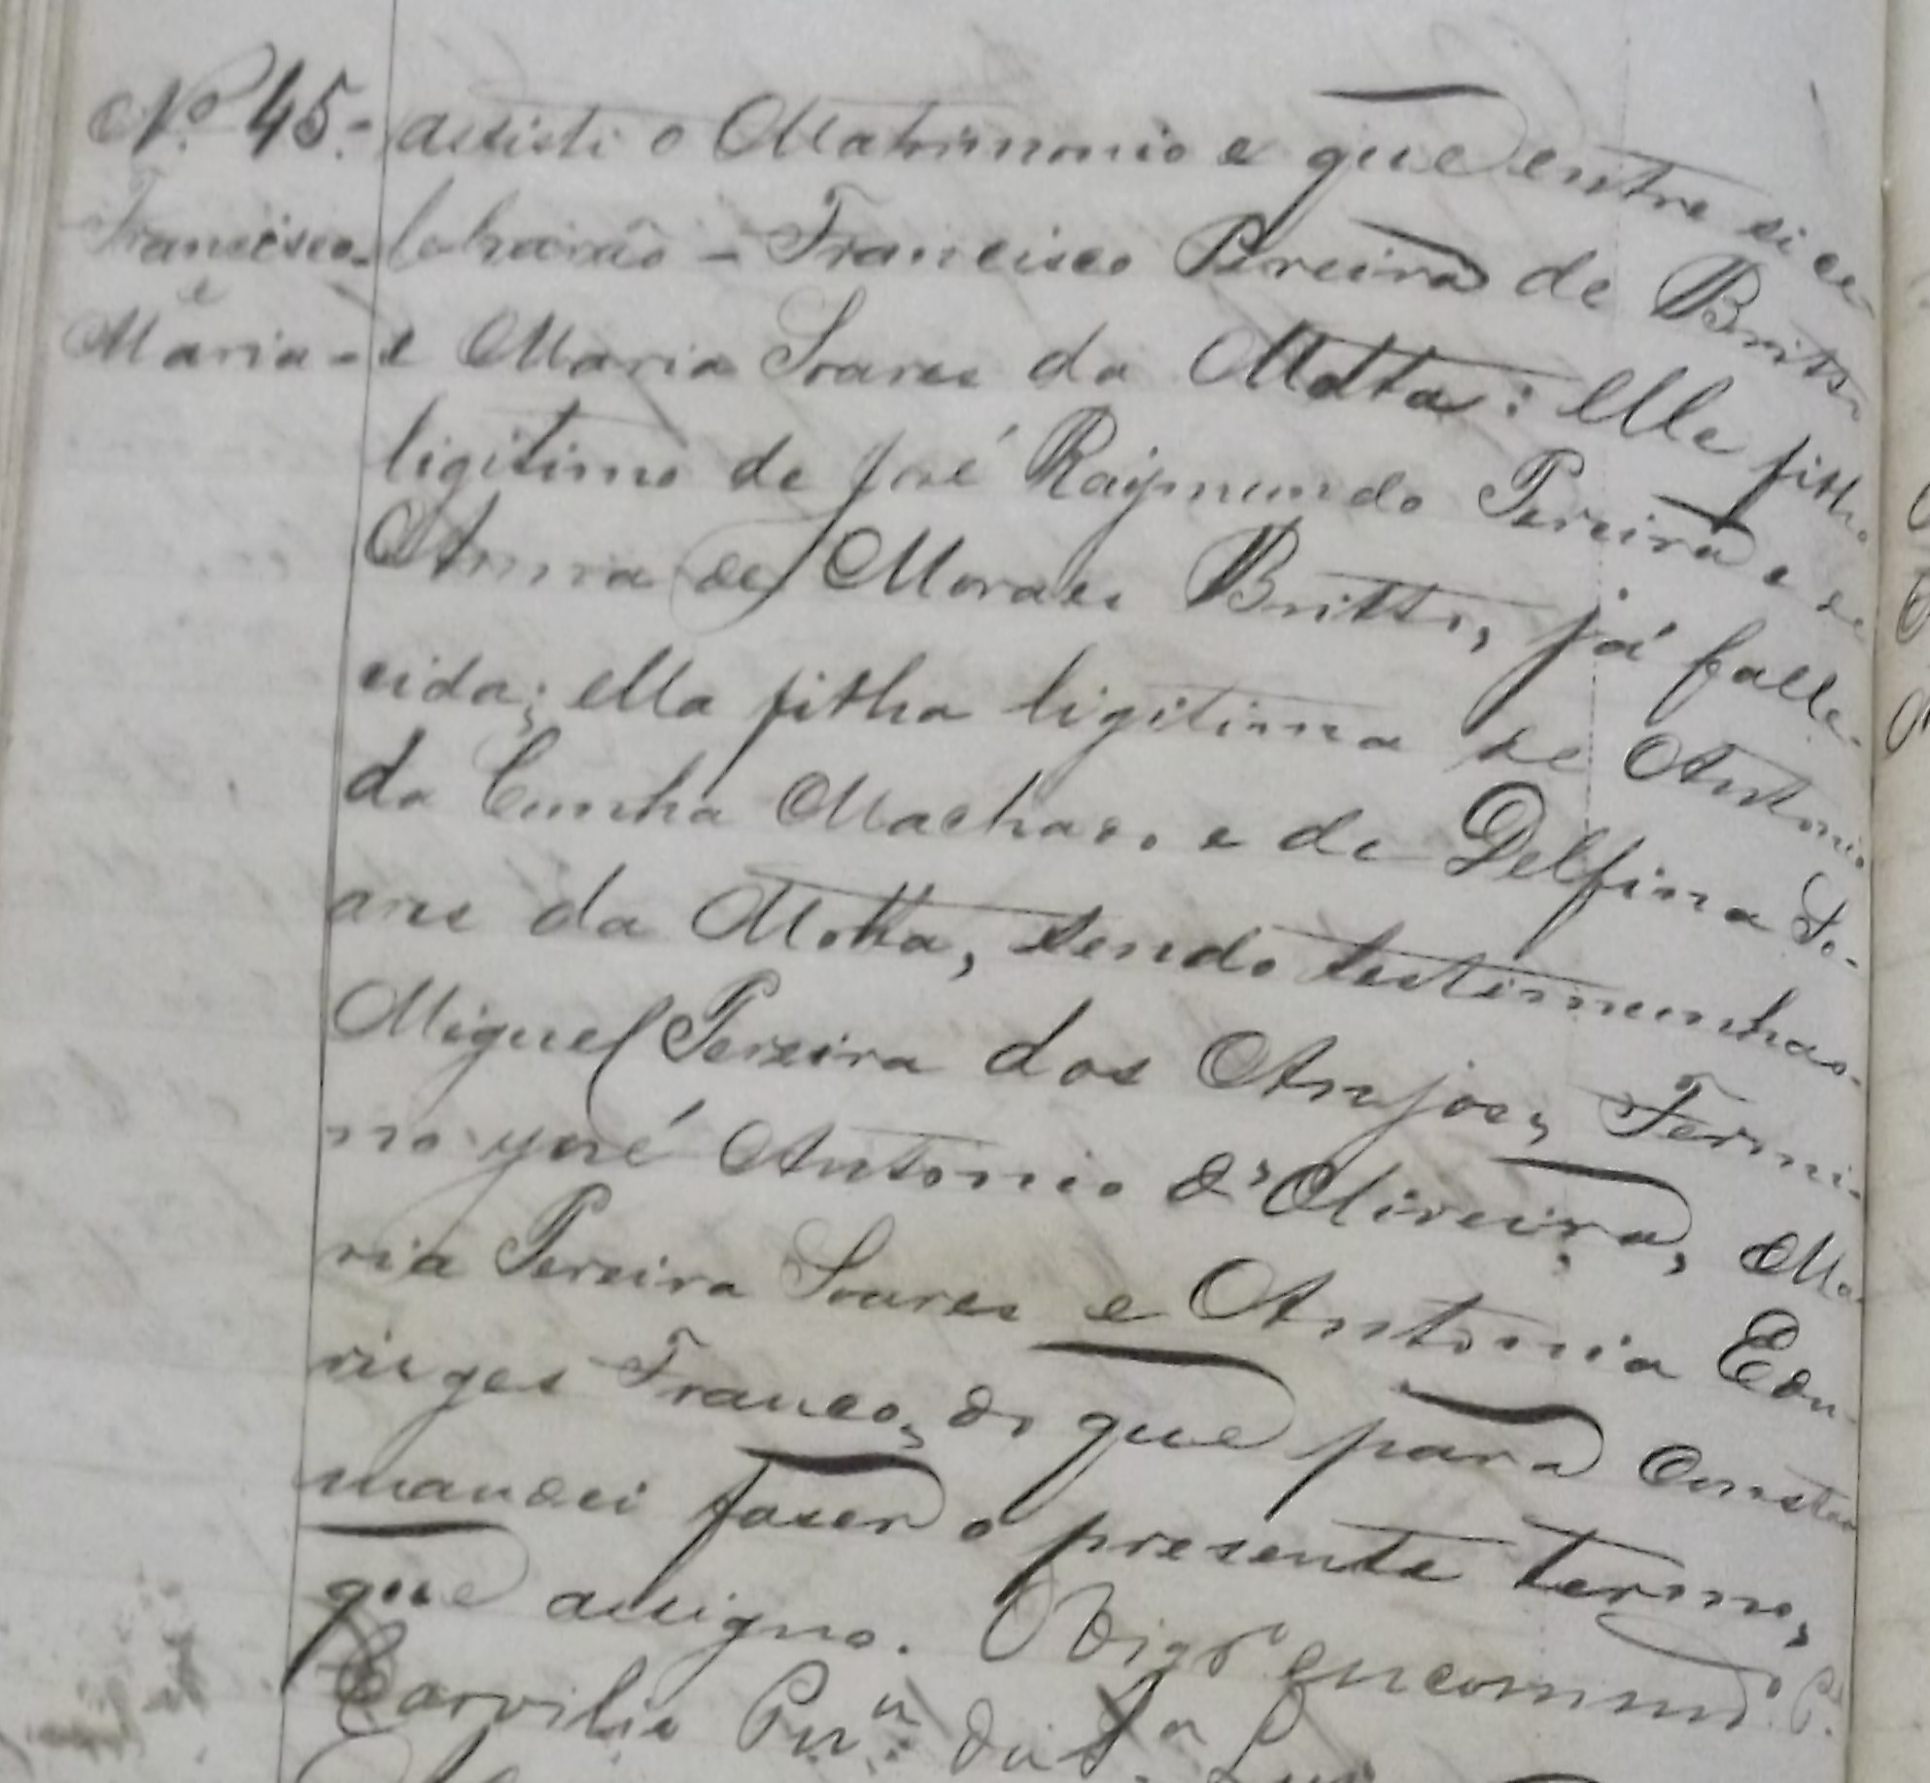 Nº 45.- assisti o Matrimonio e que entre si ce-
Francisco- lebrarão - Francisco Pereira de Britto
e
Maria - e Maria Soares da Motta: elle filho
ligitimo de José Raymundo Pereira e de
Anna de Moraes Britto, já falle-
cida; ella filha ligitima de Antonio
da Cunha Machado e de Delfina So-
ares da Motta, sendo testimunhas-
Miguel Pereira dos Anjos, Fermi-
no José Antonio d'Oliveira, Ma-
ria Pereira Soares e Antonia Edu-
virges Franco, do que para constar
mandei faser o presente termo,
que assigno. O Vigrº encommdº Pe.
Carvilio Prª da Sª